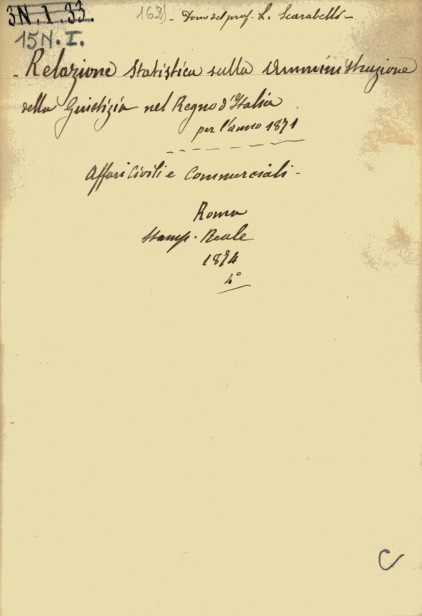 3N.1.33. 162) - Dono del prof. L. Scarabelli -
15N.I.
- Relazione Statistica sulla Amministrazione
della Giustizia nel Regno d'Italia
per l'anno 1871
Affari Civili e Commerciali -
Roma
Stamp. Reale
1874
4°
C